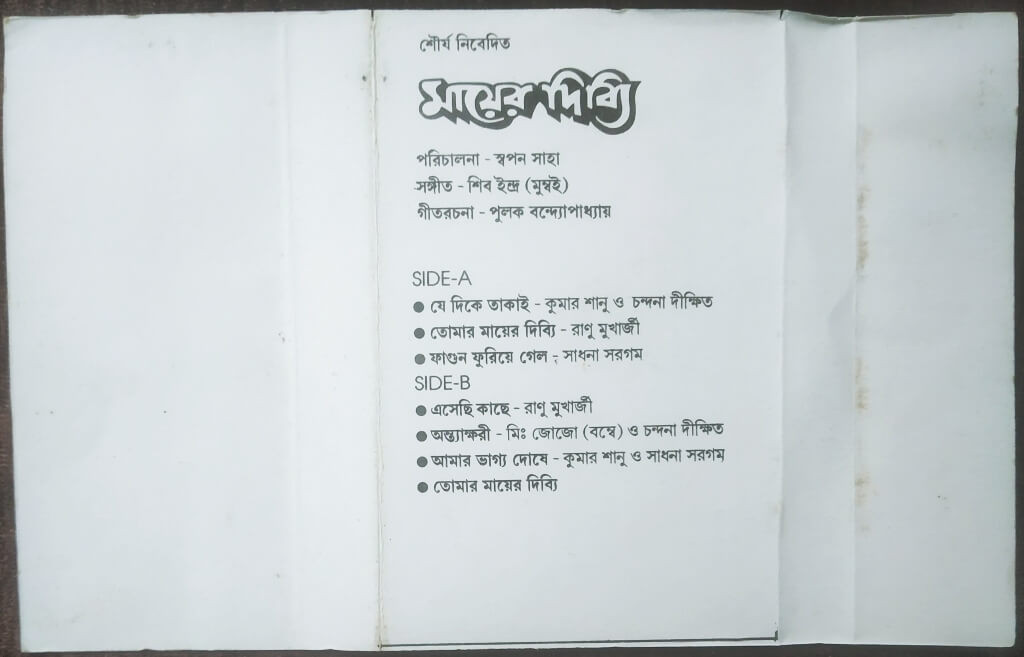 শৌর্য নিবেদিত
মায়ের দিব্যি
পরিচালনা - স্বপন সাহা
সঙ্গীত - শিব ইন্দ্র (মুম্বই)
গীতরচনা - পুলক বন্দ্যোপাধ্যায়
SIDE-A
● যে দিকে তাকাই - কুমার শানু ও চন্দনা দীক্ষিত
● তোমার মায়ের দিব্যি - রাণু মুখার্জী
● ফাগুন ফুরিয়ে গেল - সাধনা সরগম
SIDE-B
● এসেছি কাছে - রাণু মুখার্জী
● অন্ত্যাক্ষরী - মিঃ জোজো (বম্বে) ও চন্দনা দীক্ষিত
● আমার ভাগ্য দোষে - কুমার শানু ও সাধনা সরগম
● তোমার মায়ের দিব্যি